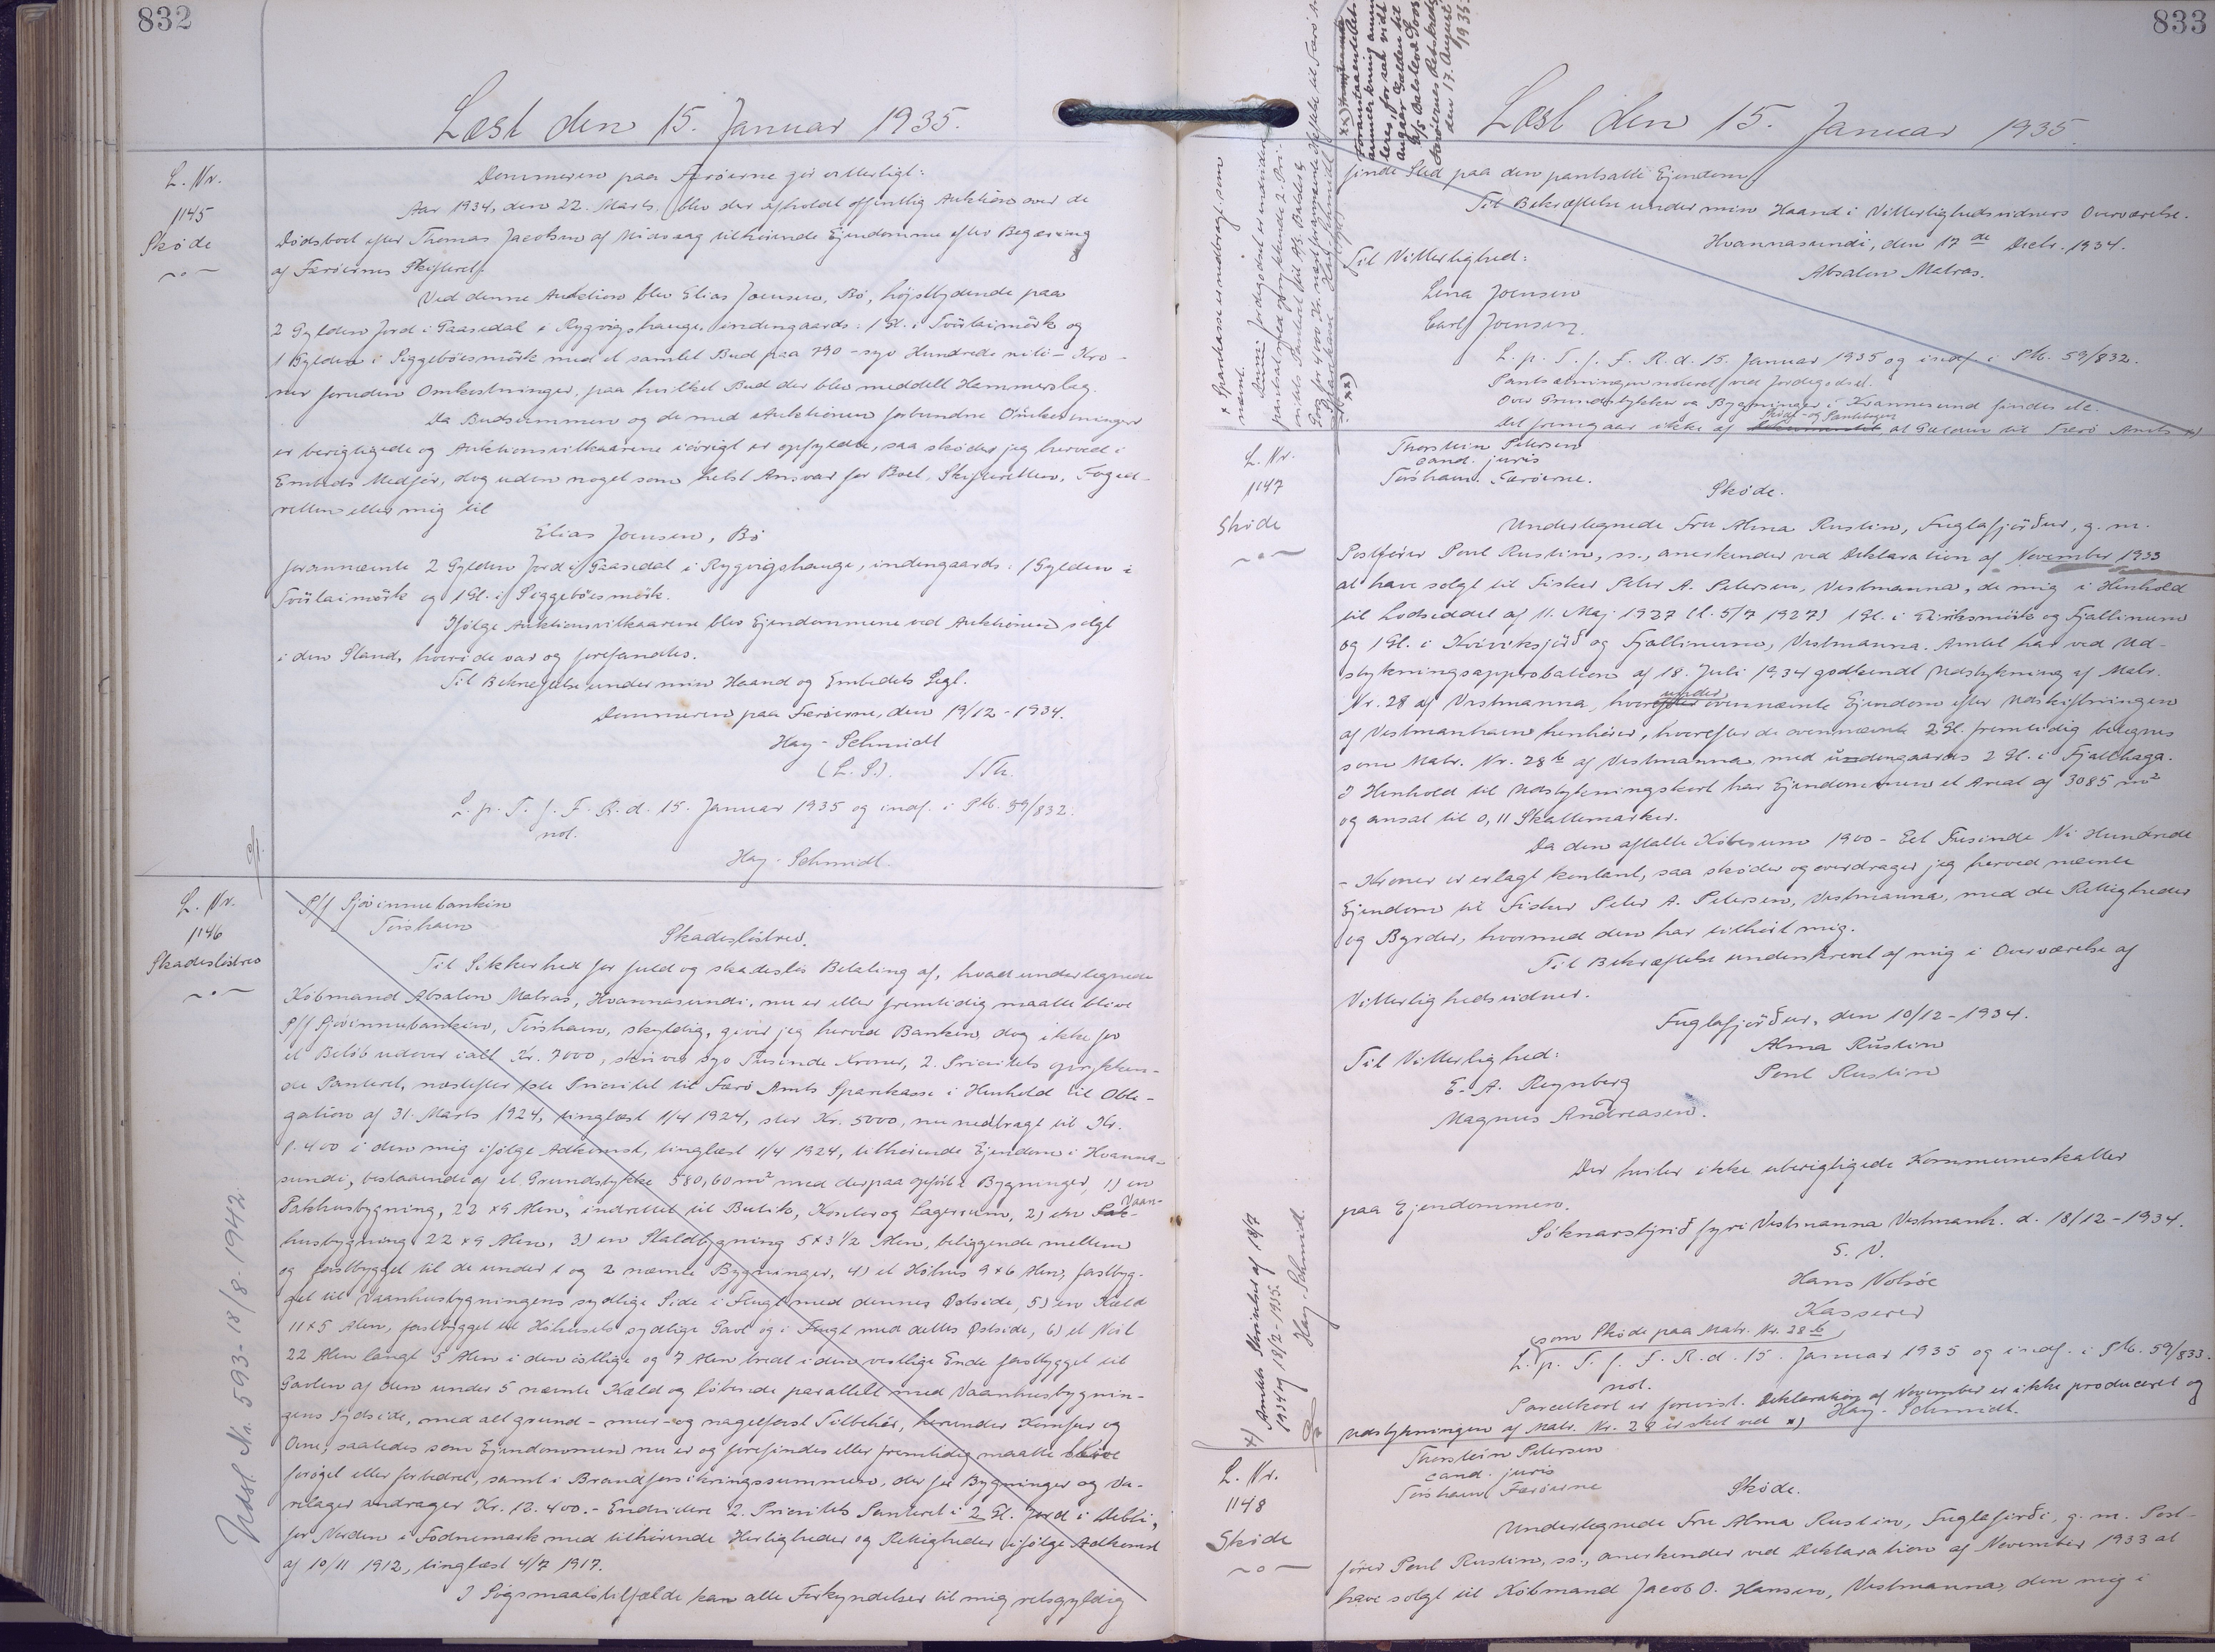 832
Læst den 15. Januar 1935.
L. Nr.
1145
Skøde
Dommeren paa Færøerne gør vitterligt:
Aar 1934, den 22. Marts, blev der afholdt offentlig Auktion over de
Dødsboet efter Thomas Jacobsen af tilhørende Ejendomme efter Begæring
af Færøernes Skifteret.
Ved denne Auktion blev Elias Joensen, Bø, højstbydende paa
2 Gylden Jord i Gaasedal i Rygvigshauge, indengaards: 1 Gl. i Tvørlaimørk og
1 Gylden i Siggebøesmørk med et samlet Bud paa 790 - syv Hundrede niti - Kro-
ner foruden Omkostninger, paa hvilket Bud der blev meddelt Hammerslag.
Da Budsummen og de med Auktionen forbundne Omkostninger
er berigtigede og Auktionsvilkaarene iøvrigt er opfyldte, saa skøder jeg herved i
Embeds Medfør, dog uden noget som helst Ansvar for Boet, Skifteretten, Foged-
retten eller mig til
Elias Joensen, Bø
forannævnte 2 Gylden Jord i Gaasedal i Rygvigshauge, indengaards: 1 Gylden i
Tvørlaimørk og 1 Gl. i Siggebøesmørk.
Ifølge Auktionsvilkaarene blev Ejendommene ved Auktionen solgt
i den Stand, hvori de var og forefandtes.
Til Bekræftelse under min Haand og Embedets Segl.
Dommeren paa Færøerne, den 19/12 - 1934.
Hay-Schmidt
(L. S.). /Th.
L. p. T. f. F. R. d. 15. Januar 1935 og indf. i P.M. 59/832.
not.
Hay-Schmidt.
L. Nr.
1146
Skadesløsbrev
Udsl. Nr. 593-18/8-1942.
P/f Sjóvinnubankin
Tórshavn
Skadesløsbrev.
Til Sikkerhed for fuld og skadesløs Betaling af, hvad undertegnede
Købmand Absalon Matras, Hvannasundi, nu er eller fremtidig maatte blive
P/f Sjóvinnubankin, Tórshavn, skyldig, giver jeg herved Banken, dog ikke for
et Beløb udover ialt Kr. 7000, skriver syv Tusinde Kroner, 2. Prioritets oprykken-
de Panteret, næstefter 1ste Prioritet til Færø Amts Sparekasse i Henhold til Obli-
gation af 31. Marts 1924, tinglæst 1/4 1924, stor Kr. 5000, nu nedbragt til Kr.
1.400 i den mig ifølge Adkomst, tinglæst 1/4 1924, tilhørende Ejendom i Hvanna-
sundi, bestaaende af et Grundstykke 580,60 m² med derpaa opførte Bygninger, 1) en
Pakhusbygning, 22 x 9 Alen, indrettet til Butik, Kontor og Lagerrum, 2) en Vaan-
husbygning 22 x 9 Alen, 3) en Staldbygning 5 x 3 1/2 Alen, beliggende mellem
og fastbygget til de under 1 og 2 nævnte Bygninger, 4) et Høhus 9 x 6 Alen, fastbyg-
get til Vaanhusbygningens sydlige Side i Flugt med dennes Østside, 5) en Kæld
11 x 5 Alen, fastbygget til Høhusets sydlige Gavl og i Flugt med dettes Østside, 6) et
22 Alen langt 5 Alen i den østlige og 7 Alen bredt i den vestlige Ende fastbygget til
Gavlen af den under 5 nævnte Kæld og løbende parallelt med Vaanhusbygnin-
gens Sydside, med alt grund- mur- og nagelfast Tilbehør, herunder Komfur og
Ovne, saaledes som Ejendommen nu er og forefindes eller fremtidig maatte blive
forøget eller forbedret, samt i Brandforsikringssummen, der for Bygninger og Va-
relager andrager Kr. 12.400.- Endvidere 2. Prioritets Panteret i 2 Gl. Jord i
for Norden i Todnemark med tilhørende Herligheder og Rettigheder ifølge Adkomst
af 10/11 1912, tinglæst 4/7 1917.
I Søgsmaalstilfælde kan alle Forkyndelser til mig retsgyldig
833
Læst den 15. Januar 1935.
finde Sted paa den pantsatte Ejendom.
Til Bekræftelse under min Haand i Vitterlighedsvidners Overværelse.
Hvannasundi, den 17de Decbr. 1934.
Absalon Matras.
Til Vitterlighed:
Lena Joensen
Carl Joensen.
L. p. T. f. F. R. d. 15. Januar 1935 og indf. i P.M. 59/832.
Pantsætningen noteret ved Jordegodset.
Over Grundstykker og Bygninger i Hvannesund findes etc.
Skøde- og Pantebogen
Det fremgaar ikke af at Gælden til Færø Amts x)
x Sparekasse er nedbragt som
nævnt.
den 17. August 1935.
L. Nr.
1147
Skøde
Thorstein Petersen
cand. juris
Tórshavn. Færøerne.
Skøde.
Undertegnede Fru Alma Rustin, Fuglafjørður, g. m.
Postfører Poul Rustin, ss., anerkender ved Deklaration af November 1933
at have solgt til Fisker Peter A. Petersen, Vestmanna, de mig i Henhold
til Lodseddel af 11. Maj 1927 (t. 5/7 1927) 1 Gl. i Eiriksmørk og Fjallinum
og 1 Gl. i Kvívíksjørð og Fjallinum, Vestmanna. Amtet har ved Ud-
stykningsapprobation af 18. Juli 1934 godkendt Udstykning af Matr.
under
Nr. 28 af Vestmanna, hvorefter ovennævnte Ejendom efter Udskiftningen
af Vestmanhavn henhører, hvorefter de ovennævnte 2 Gl. fremtidig betegnes
som Matr. Nr. 28 b af Vestmanna med undengaardes 2 Gl. i Fjallhaga.
I Henhold til Udstykningskort har Ejendommen et Areal af 3085 m²
og ansat til 0,11 Skattemarker.
Da den aftalte Købesum 1900 - Eet Tusinde Ni Hundrede
- Kroner er erlagt kontant, saa skøder og overdrager jeg herved nævnte
Ejendom til Fisker Peter A. Petersen, Vestmanna, med de Rettigheder
og Byrder, hvormed den har tilhørt mig.
Til Bekræftelse underskrevet af mig i Overværelse af
Vitterlighedsvidner.
Fuglafjørður, den 10/12-1934.
Alma Rustin
Poul Rustin
Til Vitterlighed:
E. A. Reynberg
Magnus Andreasen.
Der hviler ikke uberigtigede Kommuneskatter
paa Ejendommen.
Sóknarstýrið fyri Vestmanna Vestmanh. d. 18/12-1934.
Hans Volsøe
Kasserer
som Skøde paa Matr. Nr. 28 b
L. p. T. f. F. R. d. 15. Januar 1935 og indf. i P.M. 59/833.
not.
Parcelkort er forevist. Deklaration af November er ikke produceret og
Udstykningen af Matr. Nr. 28 er sket ved x) Hay-Schmidt.
x) Amtets Skrivelser af 18/7
1934 og 18/2-1935.
Hay-Schmidt.
L. Nr.
1148
Skøde
Thorstein Petersen
cand. juris
Tórshavn, Færøerne
Skøde.
Undertegnede Fru Alma Rustin, Fuglafirði, g. m. Post-
fører Poul Rustin, ss., anerkender ved Deklaration af November 1933 at
have solgt til Købmand Jacob O. Hansen, Vestmanna, den mig i